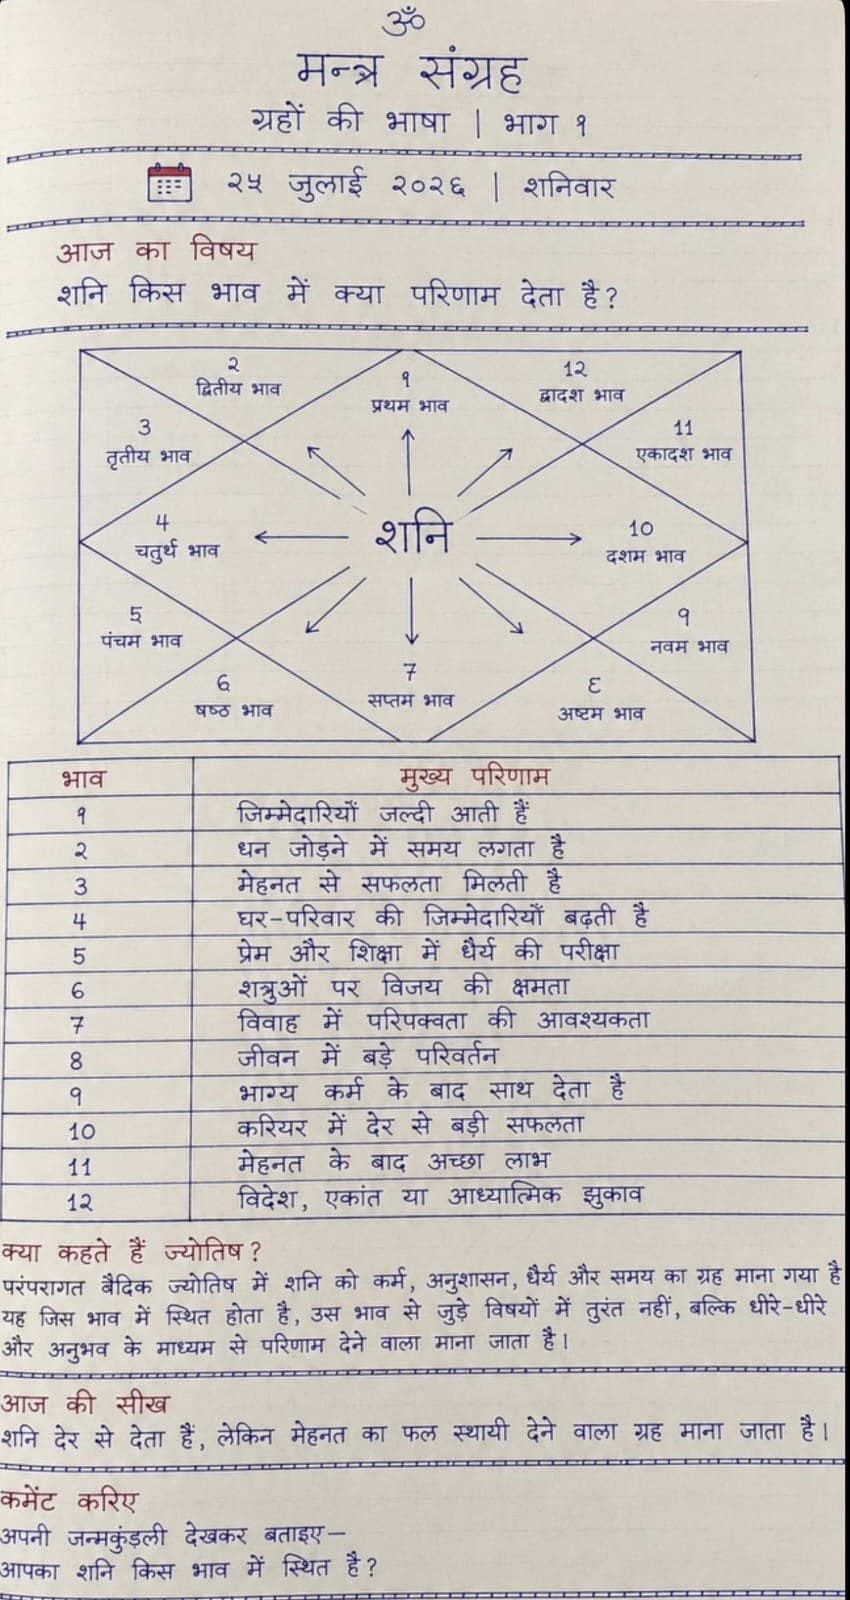 ॐ
मन्त्र संग्रह
ग्रहों की भाषा | भाग १
२५ जुलाई २०२६ | शनिवार
आज का विषय
शनि किस भाव में क्या परिणाम देता है?
२
द्वितीय भाव
१
प्रथम भाव
12
द्वादश भाव
3
तृतीय भाव
11
एकादश भाव
शनि
4
चतुर्थ भाव
10
दशम भाव
5
पंचम भाव
9
नवम भाव
6
षष्ठ भाव
7
सप्तम भाव
६
अष्टम भाव
भाव मुख्य परिणाम
१ जिम्मेदारियों जल्दी आती हैं
२ धन जोड़ने में समय लगता है
3 मेहनत से सफलता मिलती है
4 घर-परिवार की जिम्मेदारियाँ बढ़ती है
5 प्रेम और शिक्षा में धैर्य की परीक्षा
6 शत्रुओं पर विजय की क्षमता
7 विवाह में परिपक्वता की आवश्यकता
8 जीवन में बड़े परिवर्तन
9 भाग्य कर्म के बाद साथ देता है
10 करियर में देर से बड़ी सफलता
11 मेहनत के बाद अच्छा लाभ
12 विदेश, एकांत या आध्यात्मिक झुकाव
क्या कहते हैं ज्योतिष?
परंपरागत बैदिक ज्योतिष में शनि को कर्म, अनुशासन, धैर्य और समय का ग्रह माना गया है
यह जिस भाव में स्थित होता है, उस भाव से जुड़े विषयों में तुरंत नहीं, बल्कि धीरे-धीरे
और अनुभव के माध्यम से परिणाम देने वाला माना जाता है।
आज की सीख
शनि देर से देता हैं, लेकिन मेहनत का फल स्थायी देने वाला ग्रह माना जाता है।
कमेंट करिए
अपनी जन्मकुंड़ली देखकर बताइए—
आपका शनि किस भाव में स्थित है?